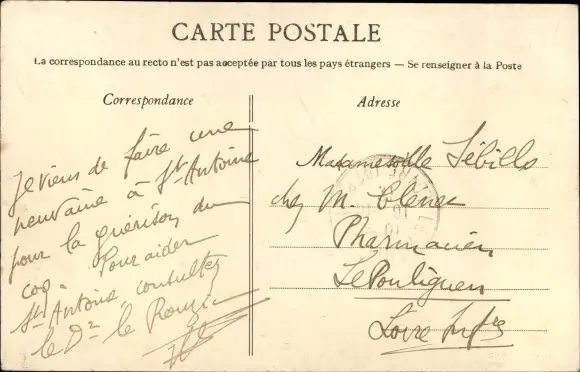 CARTE POSTALE
La correspondance au recto n'est pas acceptée par tous les pays étrangers — Se renseigner à la Poste
Correspondance
Je viens de faire une
neuvaine à St Antoine
pour la guérison du
coq. Pour aider
St Antoine consultez
le Dr le Rouzic
Adresse
Mademoiselle Sébille
chez M.
Pharmacien
Le Pouliguen
Loire Infre